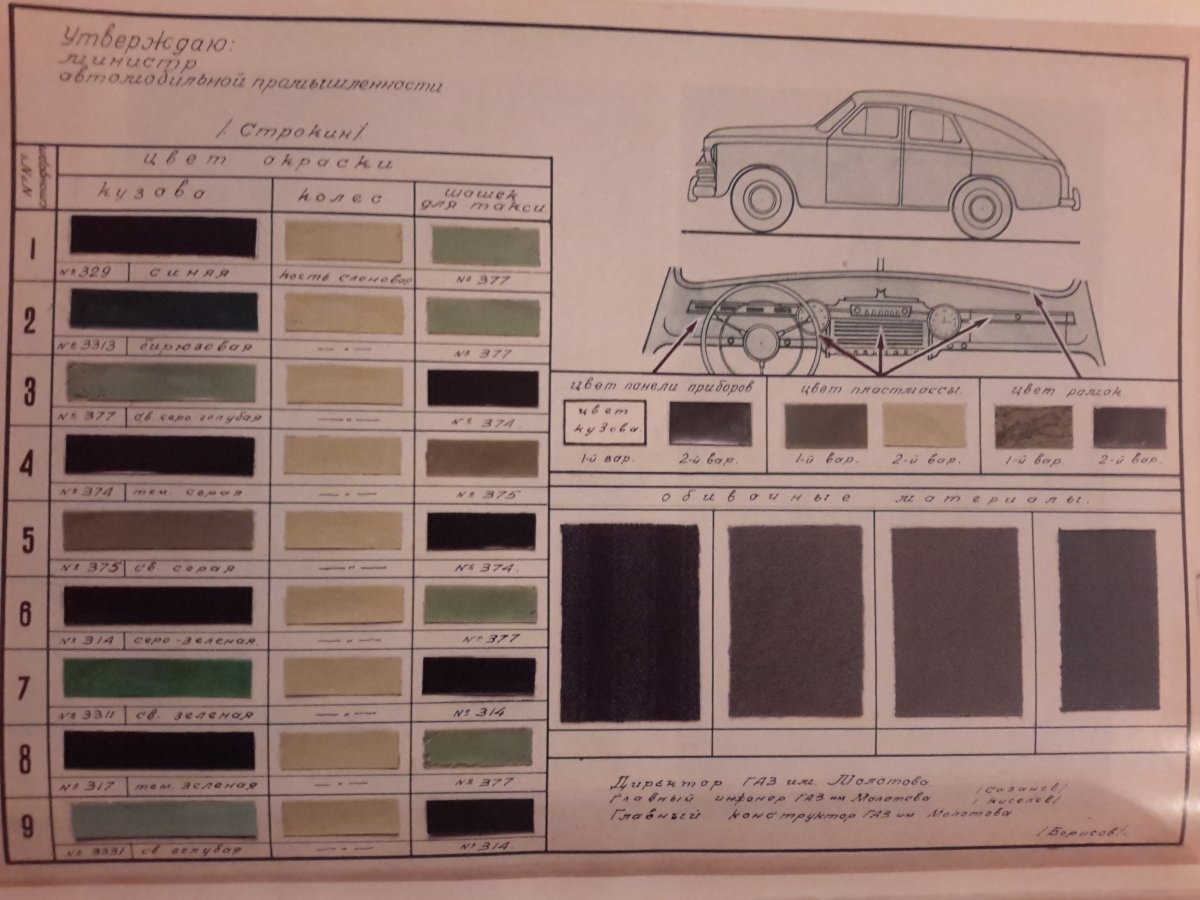 Утверждаю:
министр
автомобильной промышленности
/. Строкин/
№№ стандарт.
цвет окраски
кузова
колес
шашек
для такси
1
№ 329 синяя
кость слоновая
№ 377
2
№ 3313 бирюзовая
— " —
№ 377
3
№ 377 св. серо-голубая
— " —
№ 374.
4
№ 374 тем. серая
— " —
№ 375
5
№ 375 св. серая
— " —
№ 374.
6
№ 314 серо-зеленая.
— " —
№ 377
7
№ 3311 св. зеленая
— " —
№ 314
8
№ 317 тем. зеленая
— " —
№ 377
9
№ 3331 св. голубая
— " —
№ 314.
М
цвет панели приборов
цвет
кузова.
1-й вар. 2-й вар.
цвет пластмассы.
1-й вар. 2-й вар.
цвет рамок.
1-й вар. 2-й вар.
обивачные материалы.
Директор ГАЗ им. Молотова. /Сазанов/
Главный инжанер ГАЗ им Молотова /Киселев/
Главный конструктор ГАЗ им Молотова
/Борисов/.